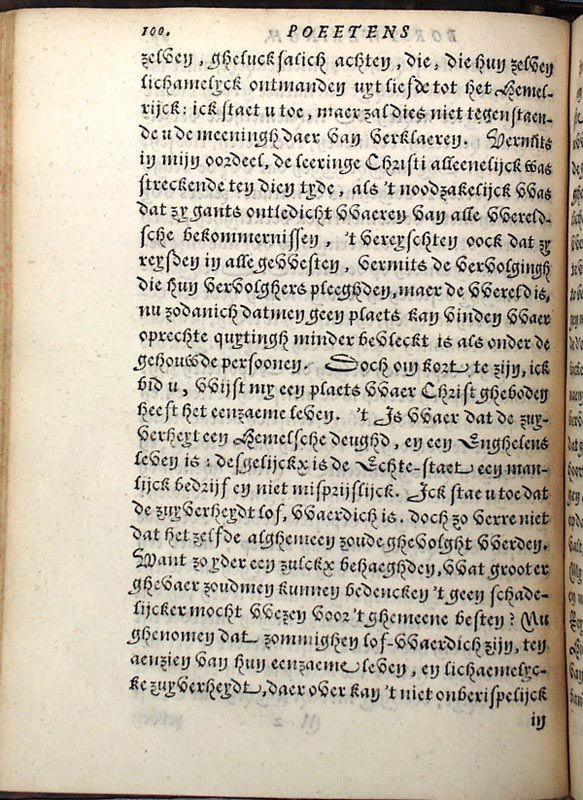 100. POEETENS
zelven, gheluckſalich achten, die, die hun zelven
lichamelyck ontmanden uyt liefde tot het Hemel-
rijck: ick staet u toe, maer zal dies niet tegenstaen-
de u de meeningh daer van verklaeren. Vermits
in mijn oordeel, de leeringe Christi alleenelijck was
streckende ten dien tyde, als 't noodzakelijck VVas
dat zy gants ontledicht VVaeren van alle VVereld-
sche bekommernissen, 't vereyschten oock dat zy
reysden in alle geVVesten, vermits de vervolgingh
die hun vervolghers pleeghden, maer de VVereld is,
nu zodanich datmen geen plaets kan vinden VVaer
oprechte quytingh minder bevleckt is als onder de
gehouwde persoonen. Doch om kort te zijn, ick
bid u, VVijst my een plaets VVaer Christ gheboden
heeft het eenzaeme leven. 't Is VVaer dat de zuy-
verheyt een Hemelsche deughd, en een Enghelens
leven is: desgelijckx is de Echte-staet een man-
lijck bedrijf en niet misprijslijck. Ick stae u toe dat
de zuyverheydt lof, VVaerdich is. doch zo verre niet
dat het zelfde alghemeen zoude ghevolght VVerden.
Want zo yder een zulckx behaeghden, VVat grooter
ghevaer zoudmen kunnen bedencken 't geen schade-
lijcker mocht VVezen voor 't ghemeene besten? Nu
ghenomen dat zommighen lof-VVaerdich zijn, ten
aenzien van hun eenzaeme leven, en lichaemelyc-
ke zuyverheydt, daer over kan 't niet onberispelijck
in